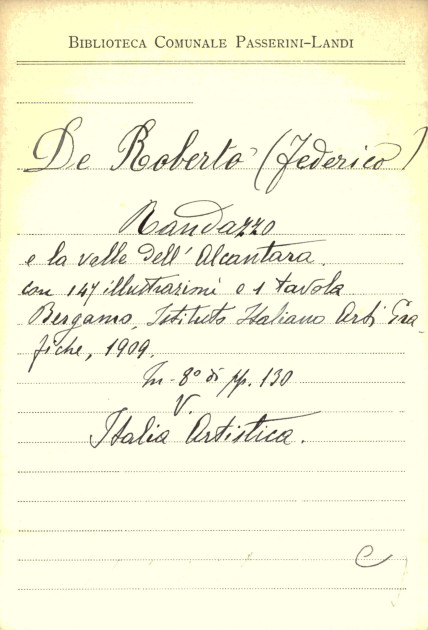 Biblioteca Comunale Passerini-Landi
De Roberto (Federico)
Randazzo
e la valle dell' Alcantara.
con 147 illustrazioni e 1 tavola
Bergamo, Istituto Italiano Arti Gra-
fiche, 1909.
In-8° di pp. 130
V.
Italia Artistica.
C